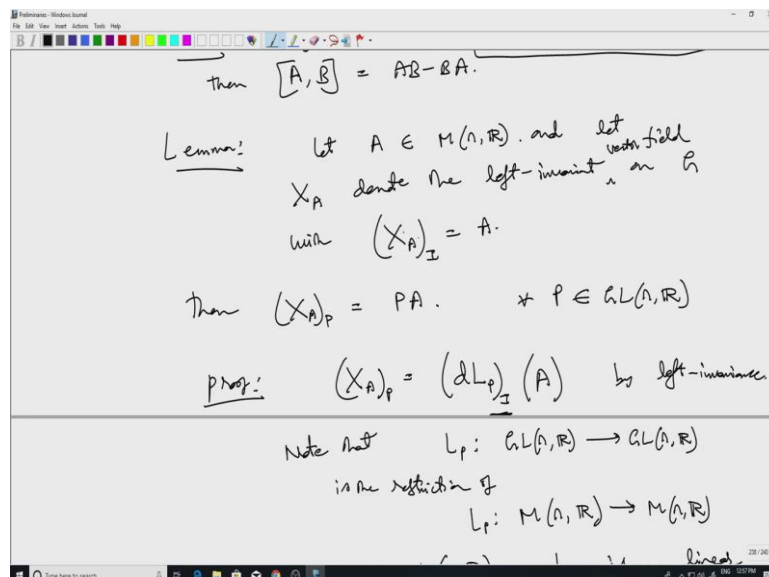 Preliminaries - Windows Journal
File Edit View Insert Actions Tools Help
then [A, B] = AB-BA.
Lemma: Let A ∈ M(n, ℝ). and let
X_A denote the left-invariant vector field on G
with (X_A)_I = A.
then (X_A)_P = PA. ∀ P ∈ GL(n, ℝ)
proof: (X_A)_P = (dL_P)_I (A) by left-invariance.
Note that L_P: GL(n, ℝ) → GL(n, ℝ)
is the restriction of
L_P: M(n, ℝ) → M(n, ℝ)
is linear
238 / 240
Type here to search
ENG 12:57 PM